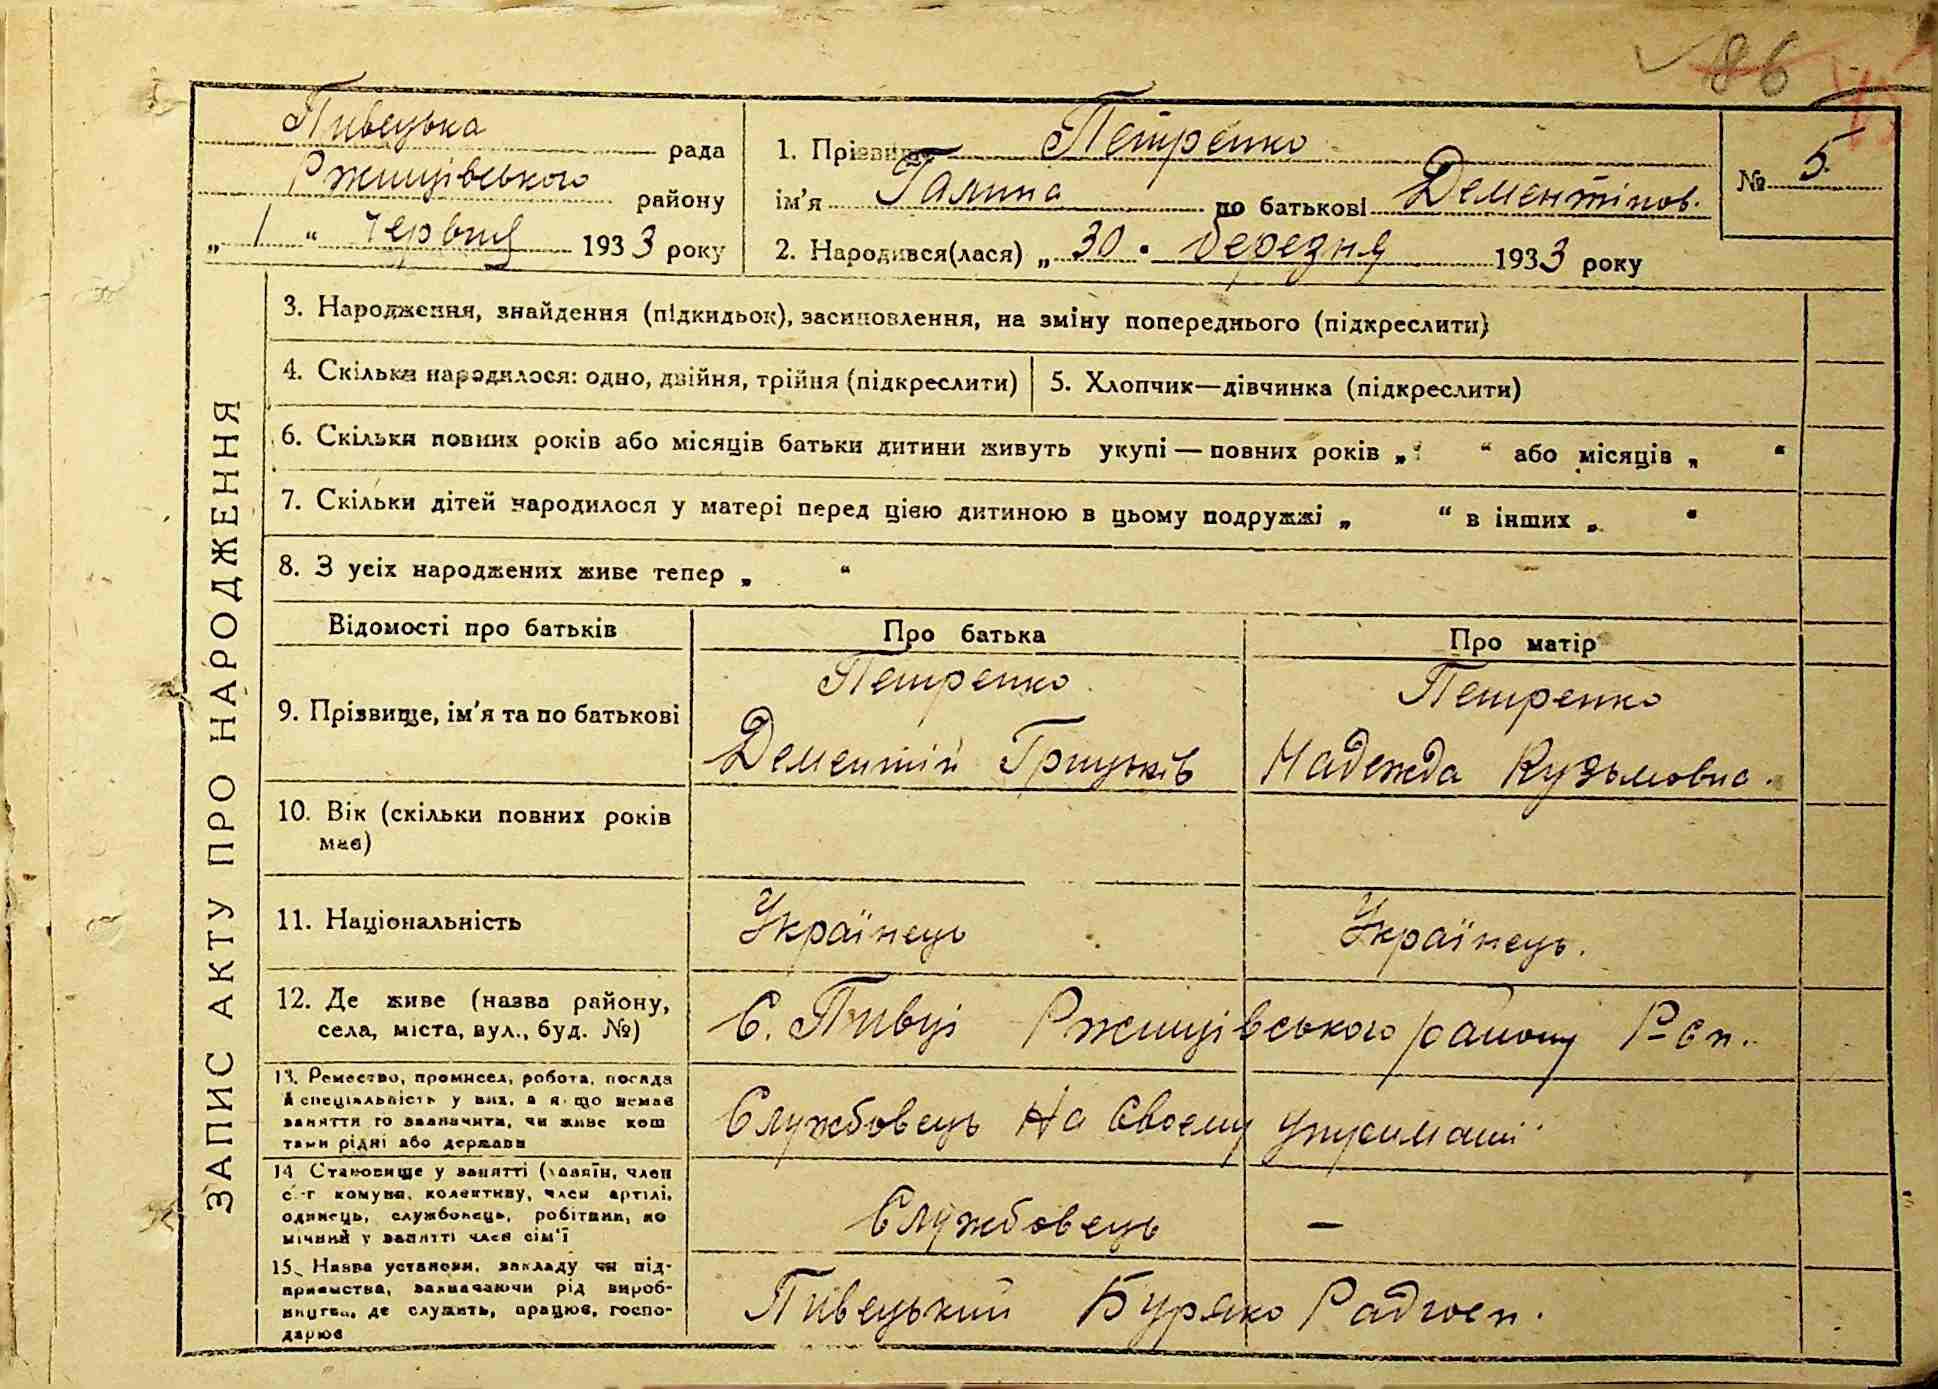 86
Пивецька рада
Ржищівського району
„ 1 “ Червня 1933 року
1. Прізвище Петренко
ім'я Галина по батькові Дементіпов.
2. Народився(лася) „ 30 • березня 1933 року
№ 5
ЗАПИС АКТУ ПРО НАРОДЖЕННЯ
3. Народження, знайдення (підкидьок), засиновлення, на зміну попереднього (підкреслити)
4. Скільки народилося: одно, двійня, трійня (підкреслити)
5. Хлопчик—дівчинка (підкреслити)
6. Скільки повних років або місяців батьки дитини живуть укупі — повних років „ “ або місяців „ “
7. Скільки дітей народилося у матері перед цією дитиною в цьому подружжі „ “ в інших „ “
8. З усіх народжених живе тепер „ “
Відомості про батьків
Про батька
Про матір
9. Прізвище, ім'я та по батькові
Петренко
Дементій Грицьків
Петренко
Надежда Кузьмовна.
10. Вік (скільки повних років
має)
11. Національність
Українець
Українець.
12. Де живе (назва району,
села, міста, вул., буд. №)
С. Пивці Ржищівського району
13. Ремество, промисел, робота, посада
й спеціальність у них, а якщо немає
заняття то зазначити, чи живе кош
тами рідні або держави
Службовець На своему утриманні
14. Становище у занятті (хазяїн, член
с.-г комуни, колективу, член артілі,
одинець, службовець, робітник, по
мічний у занятті член сім'ї
Службовець
–
15. Назва установи, закладу чи під-
приємства, зазначаючи рід вироб-
ництва, де служить, працює, госпо-
дарює
Пивецький Буряко Радгосп.